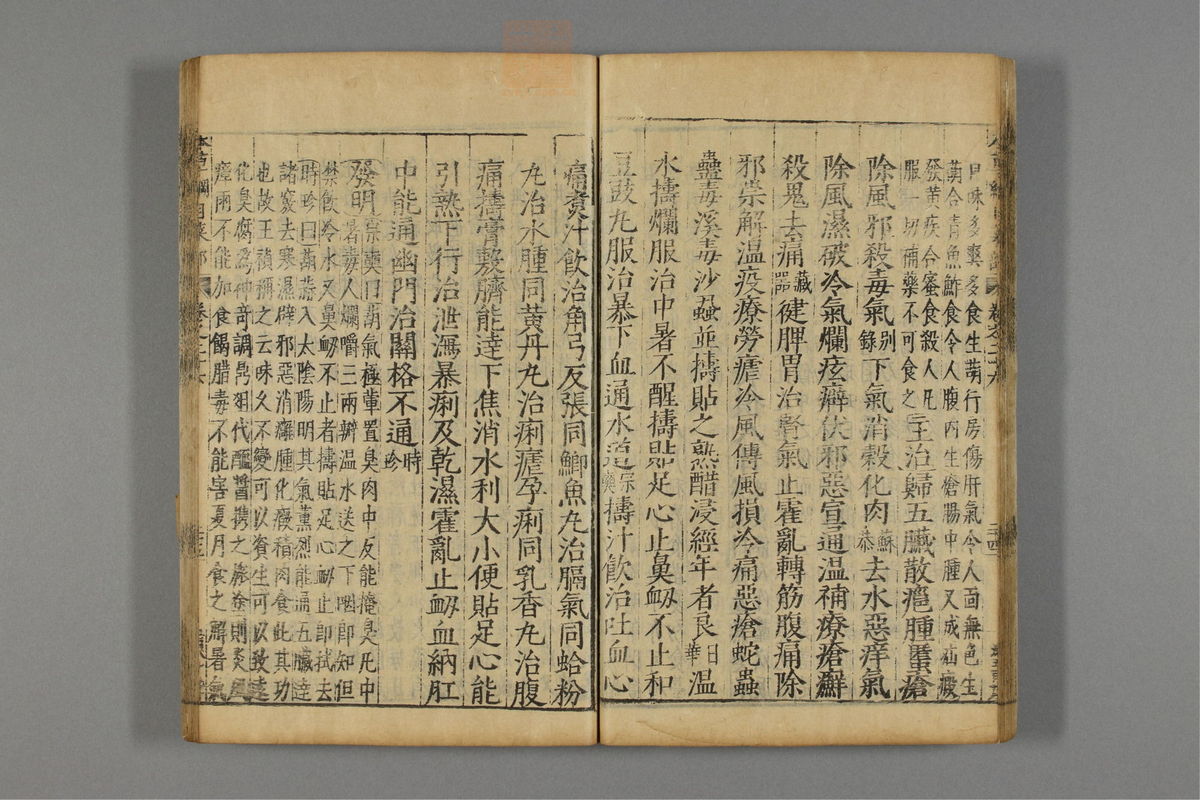 目味多羹多食生葫行房傷肝氣令人面無色生
葫合青魚鮓食令人腹內生瘡腸中腫又成疝瘕
發黃疾合蜜食殺人凡
服一切補藥不可食之
主治歸五臟散癰腫䘌瘡
除風邪殺毒氣別錄下氣消穀化肉蘇恭去水惡瘴氣
除風濕破冷氣爛痃癖伏邪惡宣通溫補療瘡癬
殺鬼去痛藏器健脾胃治腎氣止霍亂轉筋腹痛除
邪祟解溫疫療勞瘧冷風傅風損冷痛惡瘡蛇蟲
蠱毒溪毒沙蝨並擣貼之熟醋浸經年者良日華溫
水擣爛服治中暑不醒擣貼足心止鼻衄不止和
豆豉丸服治暴下血通水道宗奭擣汁飲治吐血心
痛煑汁飲治角弓反張同鯽魚丸治膈氣同蛤粉
丸治水腫同黃丹丸治痢瘧孕痢同乳香丸治腹
痛擣膏敷臍能達下焦消水利大小便貼足心能
引熱下行治泄瀉暴痢及乾濕霍亂止衄血納肛
中能通幽門治關格不通時珍
發明宗奭曰葫氣極葷置臭肉中反能掩臭凡中
暑毒人爛嚼三兩瓣溫水送之下咽即知但
禁飲冷水又鼻衄不止者擣貼足心衄止即拭去
時珍曰葫蒜入太陰陽明其氣薰烈能通五臟達
諸竅去寒濕辟邪惡消癰腫化癥積肉食此其功
也故王禎稱之云味久不變可以資生可以致遠
化臭腐為神奇調鼎俎代醯醬攜之旅塗則炎風
瘴雨不能加食餲腊毒不能害夏月食之解暑氣